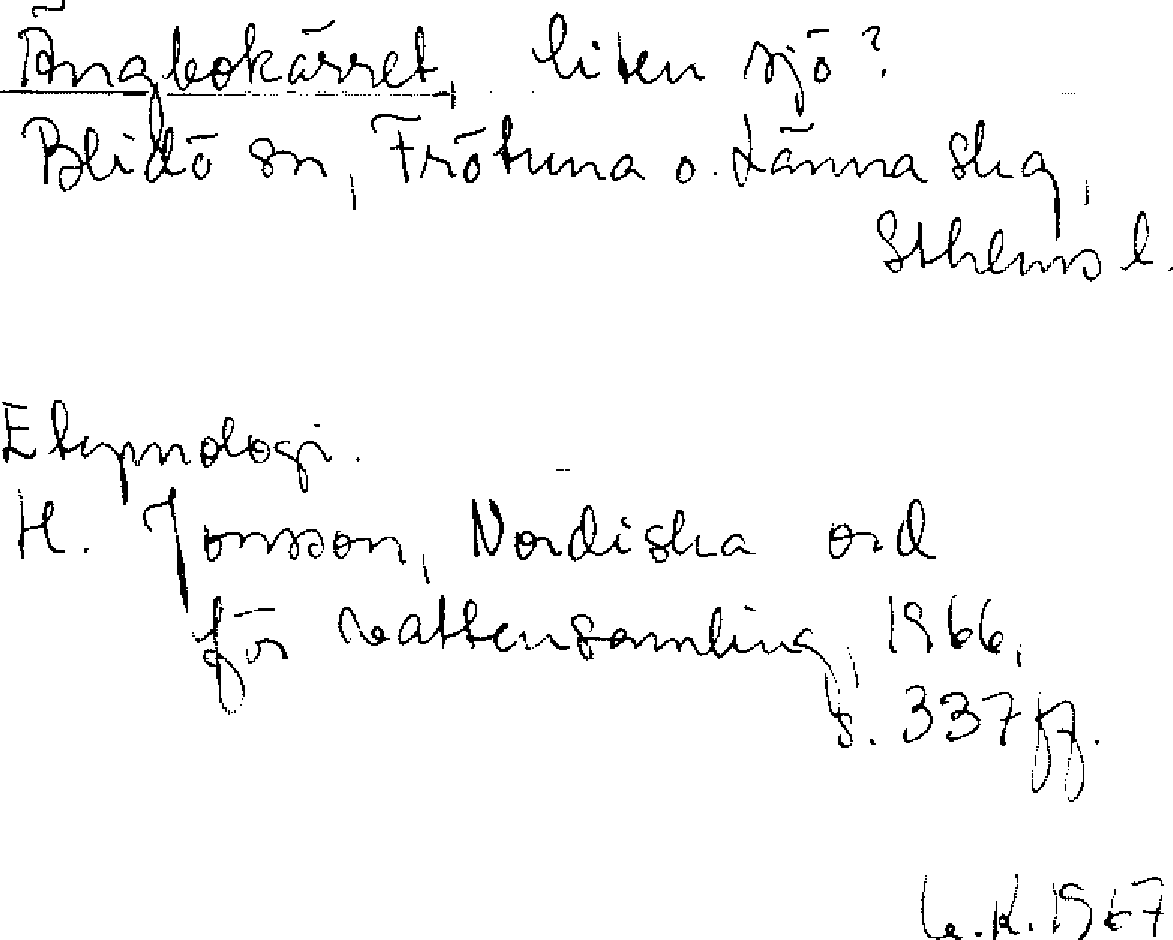 Ängbokärret, liten sjö?
Blidö sn, Frötuna o. Länna skg,
Sthlms l.
Etymologi.
H. Jonsson, Nordiska ord
för vattensamling, 1966,
s. 337 ff.
K. 1967